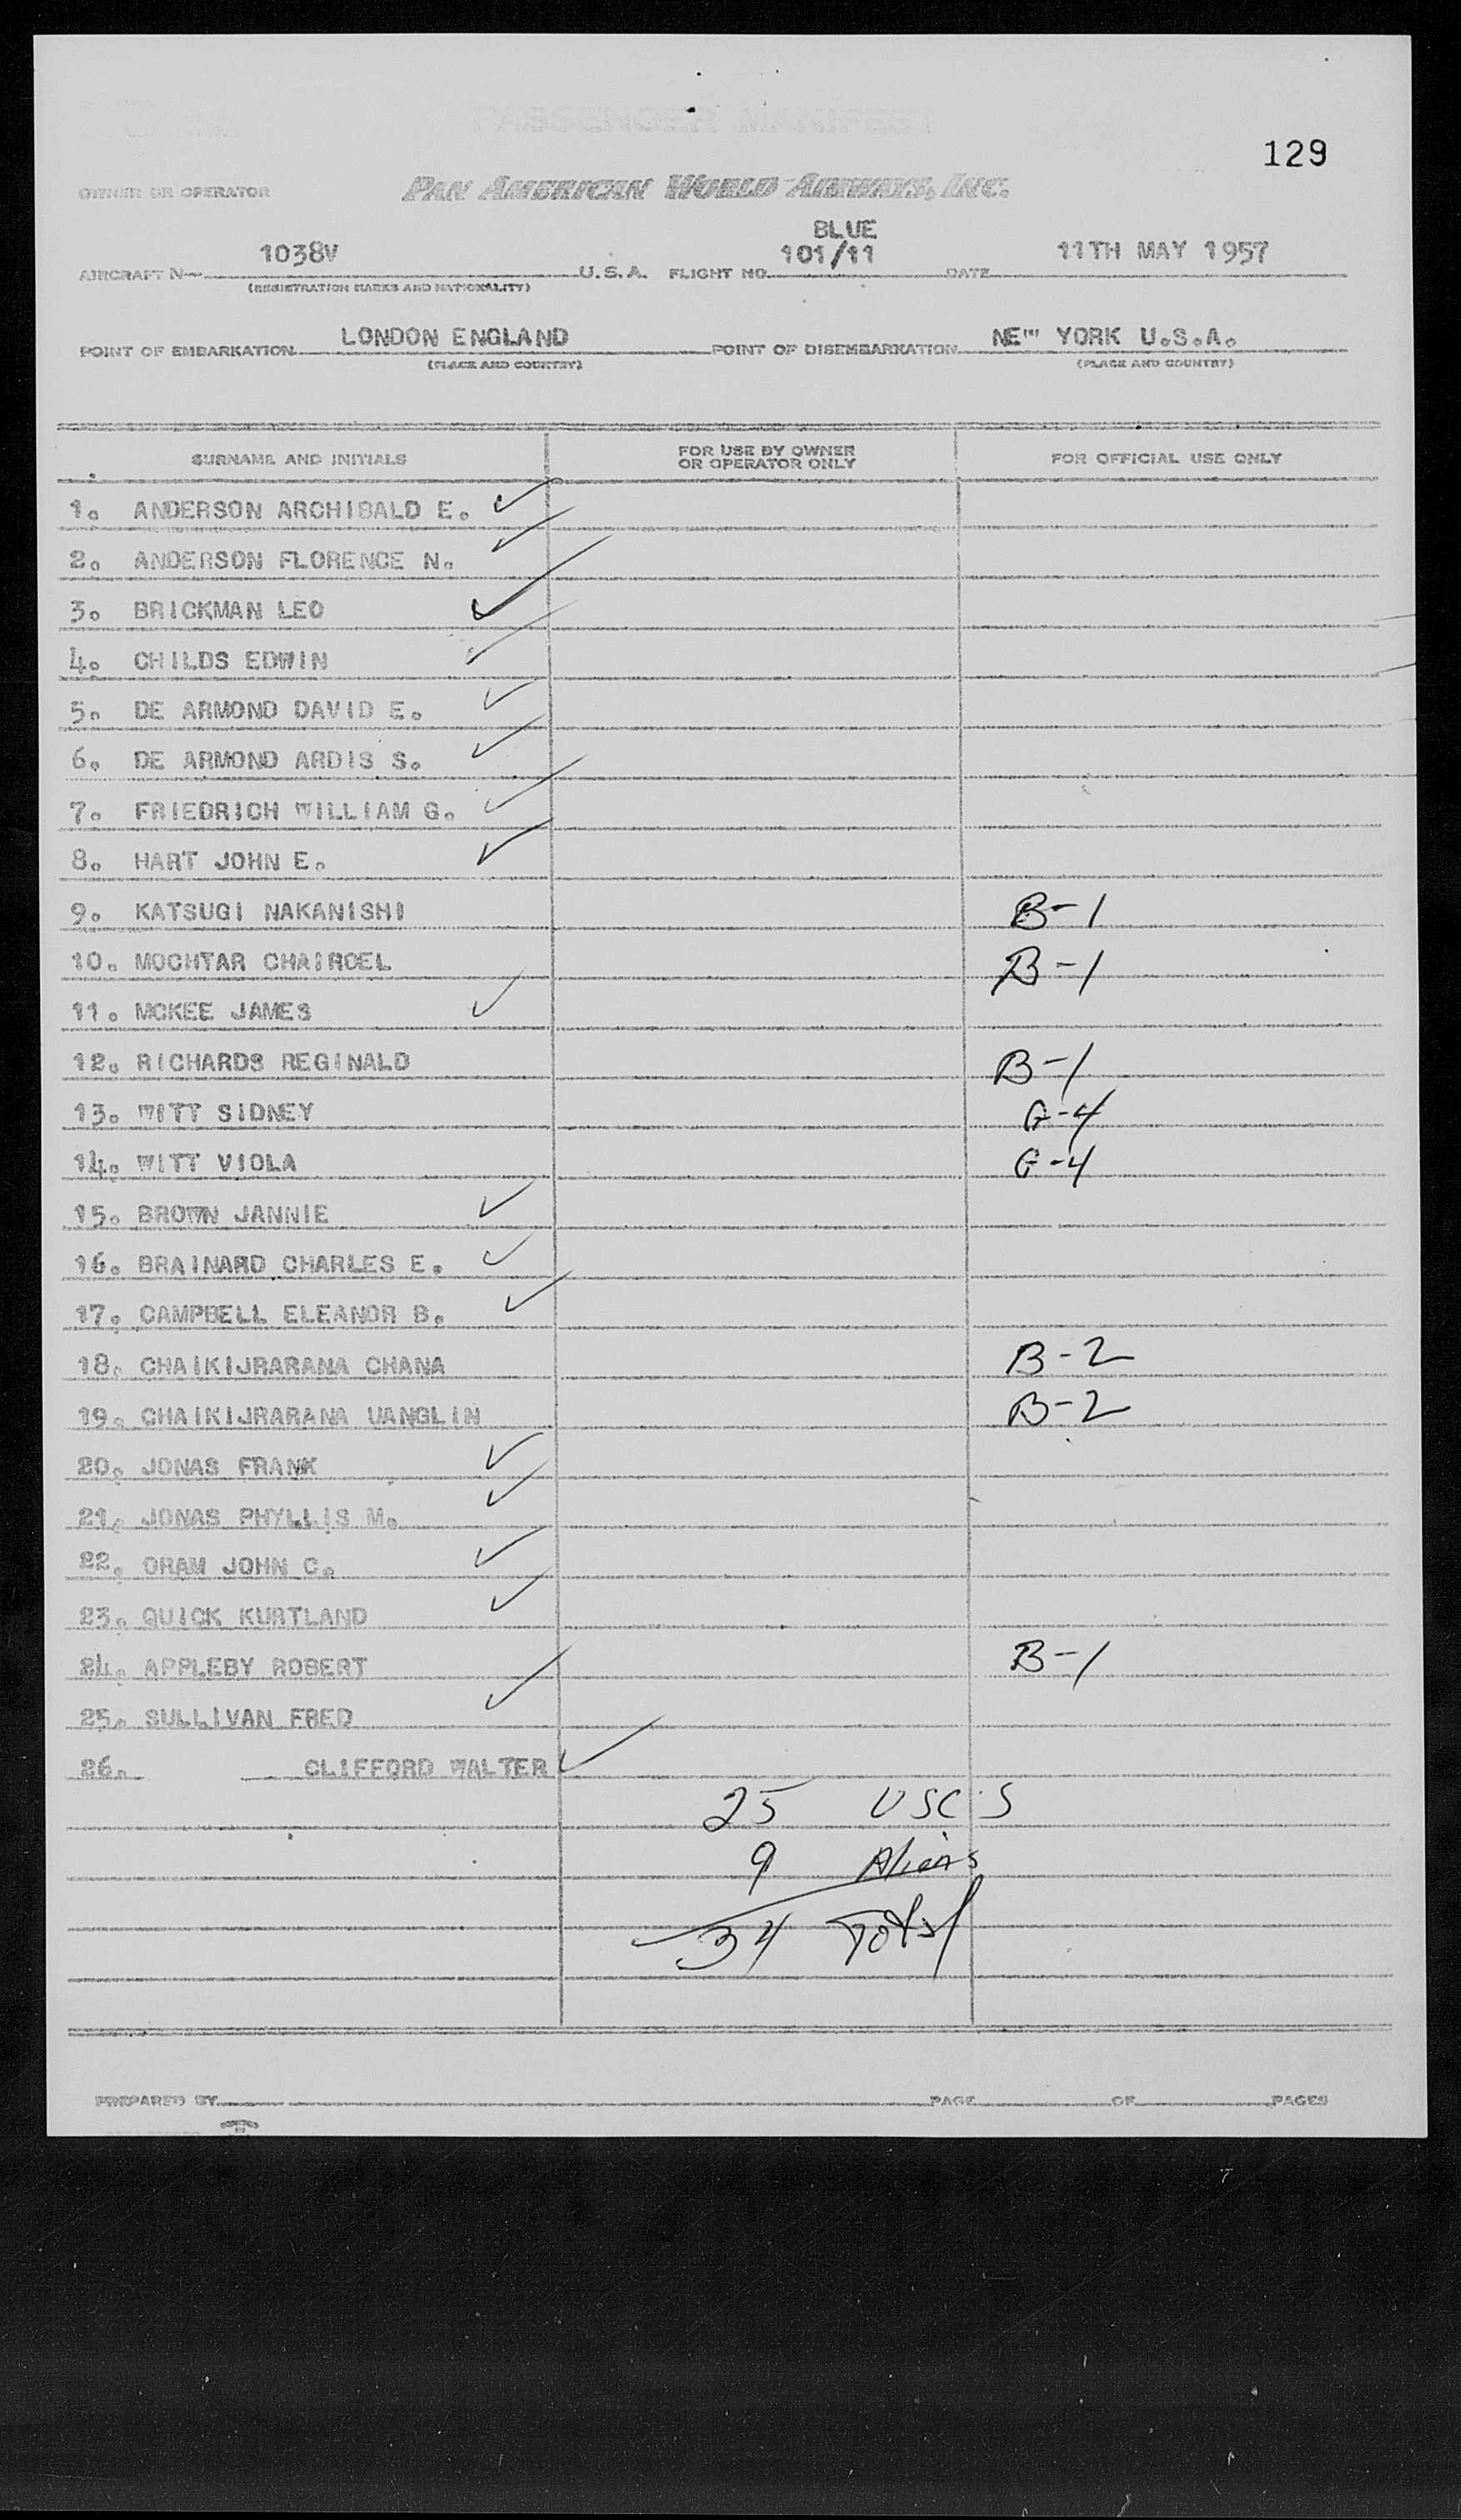 PASSENGER MANIFEST
129
OWNER OR OPERATOR PAN AMERICAN WORLD AIRWAYS, INC.
BLUE
AIRCRAFT N- 1038V U.S.A. FLIGHT NO. 101/11 DATE 11TH MAY 1957
(REGISTRATION MARKS AND NATIONALITY)
POINT OF EMBARKATION LONDON ENGLAND POINT OF DISEMBARKATION NEW YORK U.S.A.
(PLACE AND COUNTRY) (PLACE AND COUNTRY)
SURNAME AND INITIALS FOR USE BY OWNER OR OPERATOR ONLY FOR OFFICIAL USE ONLY
1. ANDERSON ARCHIBALD E. ✓
2. ANDERSON FLORENCE N. ✓
3. BRICKMAN LEO ✓
4. CHILDS EDWIN ✓
5. DE ARMOND DAVID E. ✓
6. DE ARMOND ARDIS S. ✓
7. FRIEDRICH WILLIAM G. ✓
8. HART JOHN E. ✓
9. KATSUGI NAKANISHI B-1
10. MOCHTAR CHAIROEL B-1
11. MCKEE JAMES ✓
12. RICHARDS REGINALD B-1
13. WITT SIDNEY G-4
14. WITT VIOLA G-4
15. BROWN JANNIE ✓
16. BRAINARD CHARLES E. ✓
17. CAMPBELL ELEANOR B. ✓
18. CHAIKIJRARANA CHANA B-2
19. CHAIKIJRARANA UANGLIN B-2
20. JONAS FRANK ✓
21. JONAS PHYLLIS M. ✓
22. ORAM JOHN C. ✓
23. QUICK KURTLAND ✓
24. APPLEBY ROBERT B-1
25. SULLIVAN FRED ✓
26. CLIFFORD WALTER ✓
25 USC'S
9 Aliens
34 Total
PREPARED BY PAGE OF PAGES